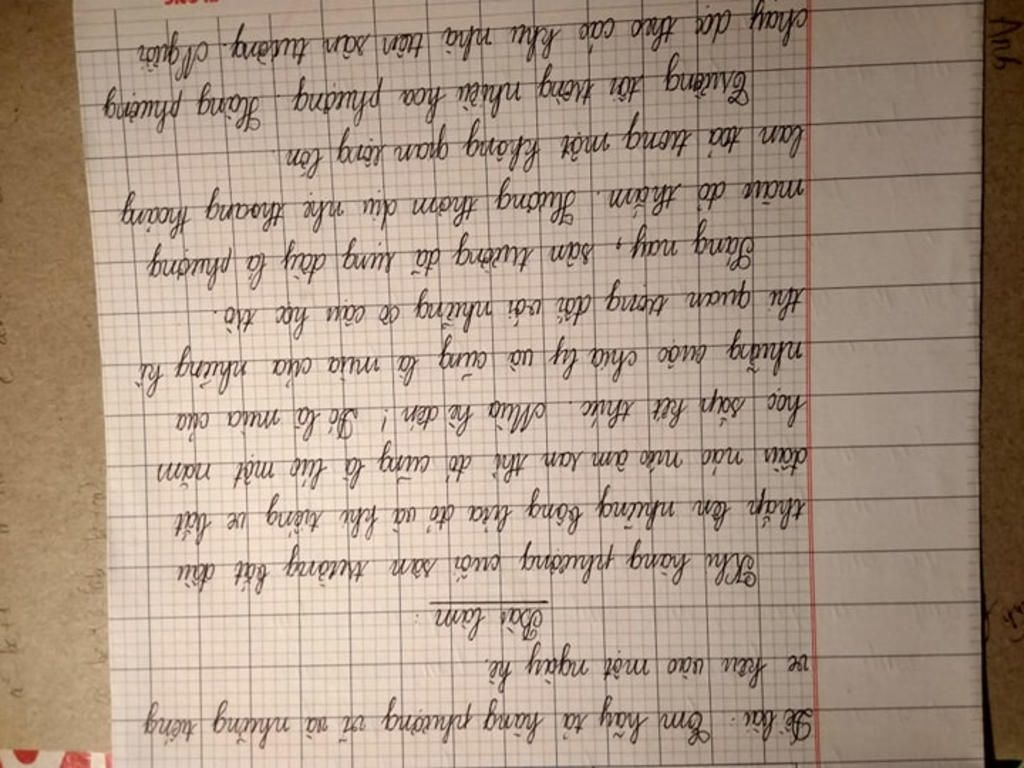 Đề bài: Em hãy tả hàng phượng vĩ và những tiếng
ve kêu vào một ngày hè.
Bài làm:
Khi hàng phượng cuối sân trường bắt đầu
thắp lên những bông lửa đỏ và khi tiếng ve bắt
đầu náo nức âm ran thì đó cũng là lúc một năm
học sắp kết thúc. Mùa hè đến! Đó là mùa của
những cuộc chia ly và cũng là mùa của những kì
thi quan trọng đối với những cô cậu học trò.
Sáng nay, sân trường đã rụng đầy lá phượng
màu đỏ thắm. Hương thơm dịu nhẹ thoang thoảng
lan toả trong một không gian rộng lớn.
Trường tôi trồng nhiều hoa phượng. Hàng phượng
chạy dọc theo các khu nhà trên sân trường. Người
Anh